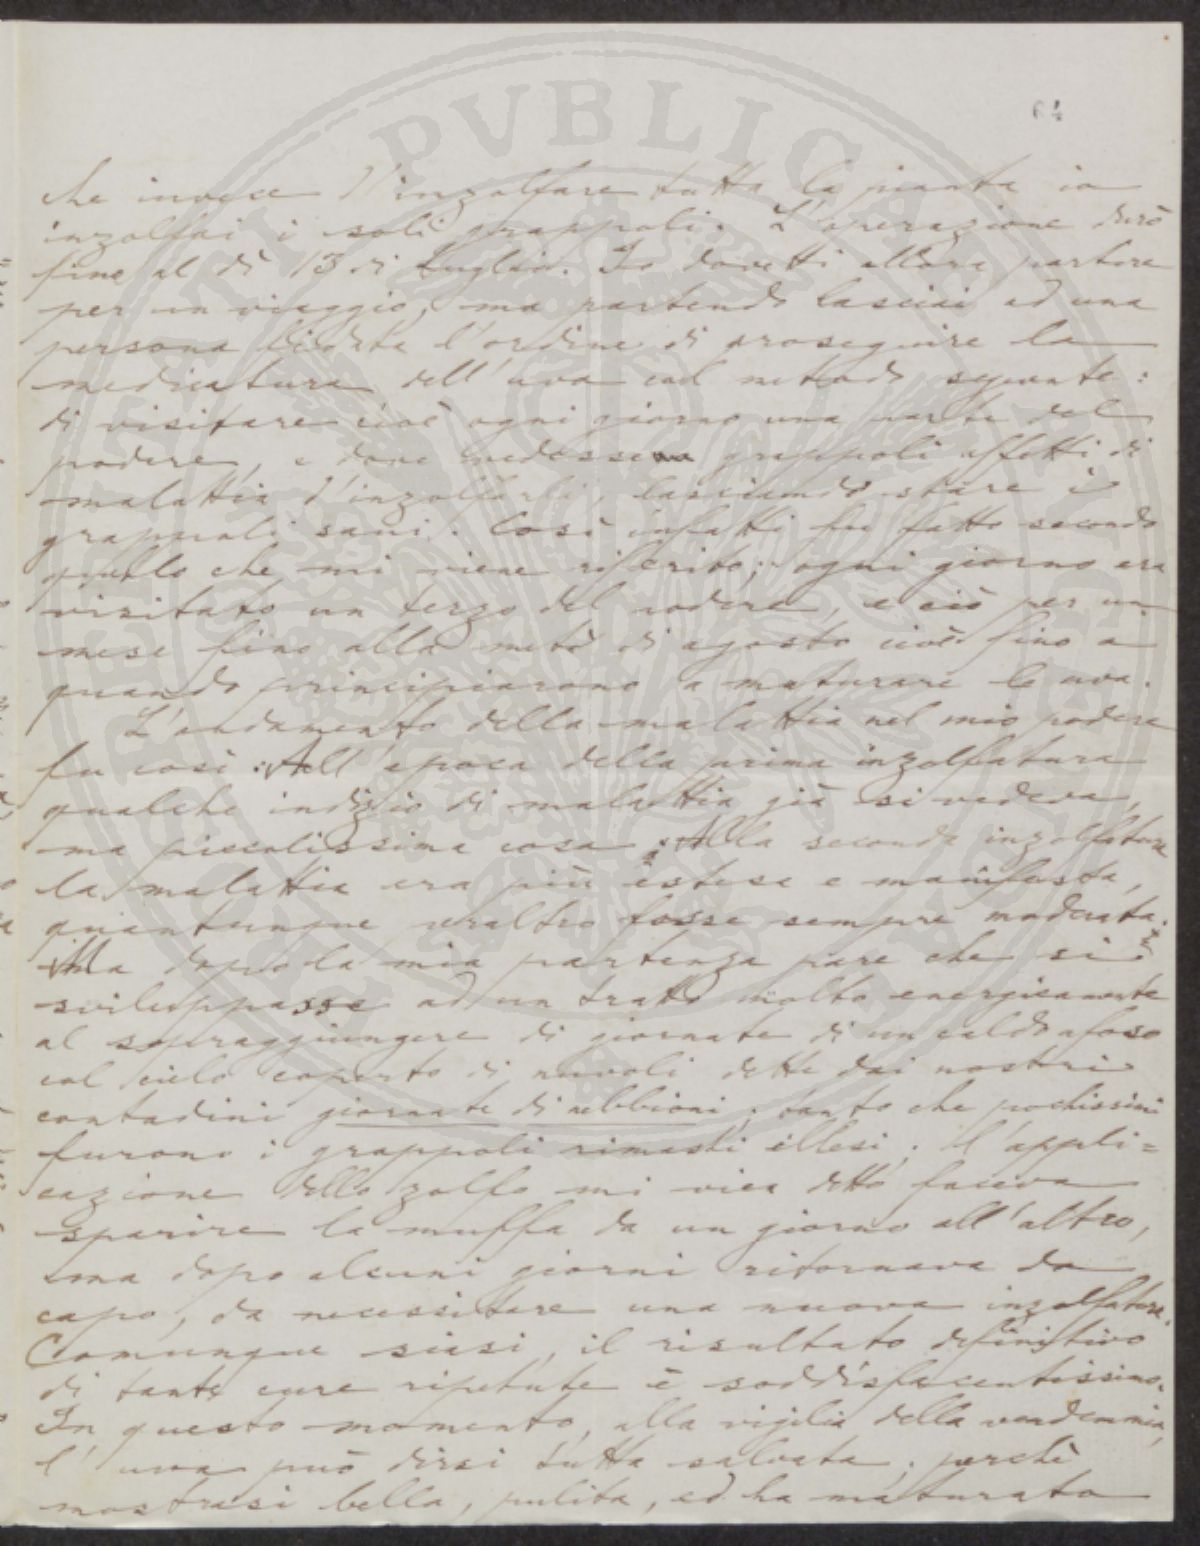 64
che invece d'inzolfare tutta la pianta io
inzolfai i soli grappoli. L'operazione durò
fino al dì 13 di Luglio. Io dovetti allora partire
per un viaggio, ma partendo lasciai ad una
persona fidata l'ordine di proseguire la
medicatura dell'uva col metodo seguente:
di visitare cioè ogni giorno una parte del
podere, e dove vedesse grappoli affetti di
malattia d'inzolfarli, lasciando stare i
grappoli sani. Così infatti fu fatto secondo
quello che mi viene riferito; ogni giorno era
visitato un terzo del podere, e ciò per un
mese fino alla metà di agosto cioè fino a
quando principiarono a maturare le uva.
L'andamento della malattia nel mio podere
fu così: All'epoca della prima inzolfatura
qualche indizio di malattia già si vedeva,
ma piccolissima cosa: Alla seconda inzolfatura
la malattia era più estesa e manifesta,
quantunque peraltro fosse sempre moderata.
Ma dopo la mia partenza pare che si
sviluppasse ad un tratto molto energicamente
al sopraggiungere di giornate di un caldo afoso
col cielo coperto di nuvoli dette dai nostri
contadini giornate di nebbioni; tanto che pochissimi
furono i grappoli rimasti illesi. l'appli=
cazione dello zolfo mi vien detto faceva
sparire la muffa da un giorno all'altro,
ma dopo alcuni giorni ritornava da
capo, da necessitare una nuova inzolfatura.
Comunque siasi, il risultato definitivo
di tante cure ripetute è soddisfacentissimo.
In questo momento, alla vigilia della vendemmia,
l'uva può dirsi tutta salvata, perchè
mostrasi bella, pulita, ed ha maturato
PVBLICA